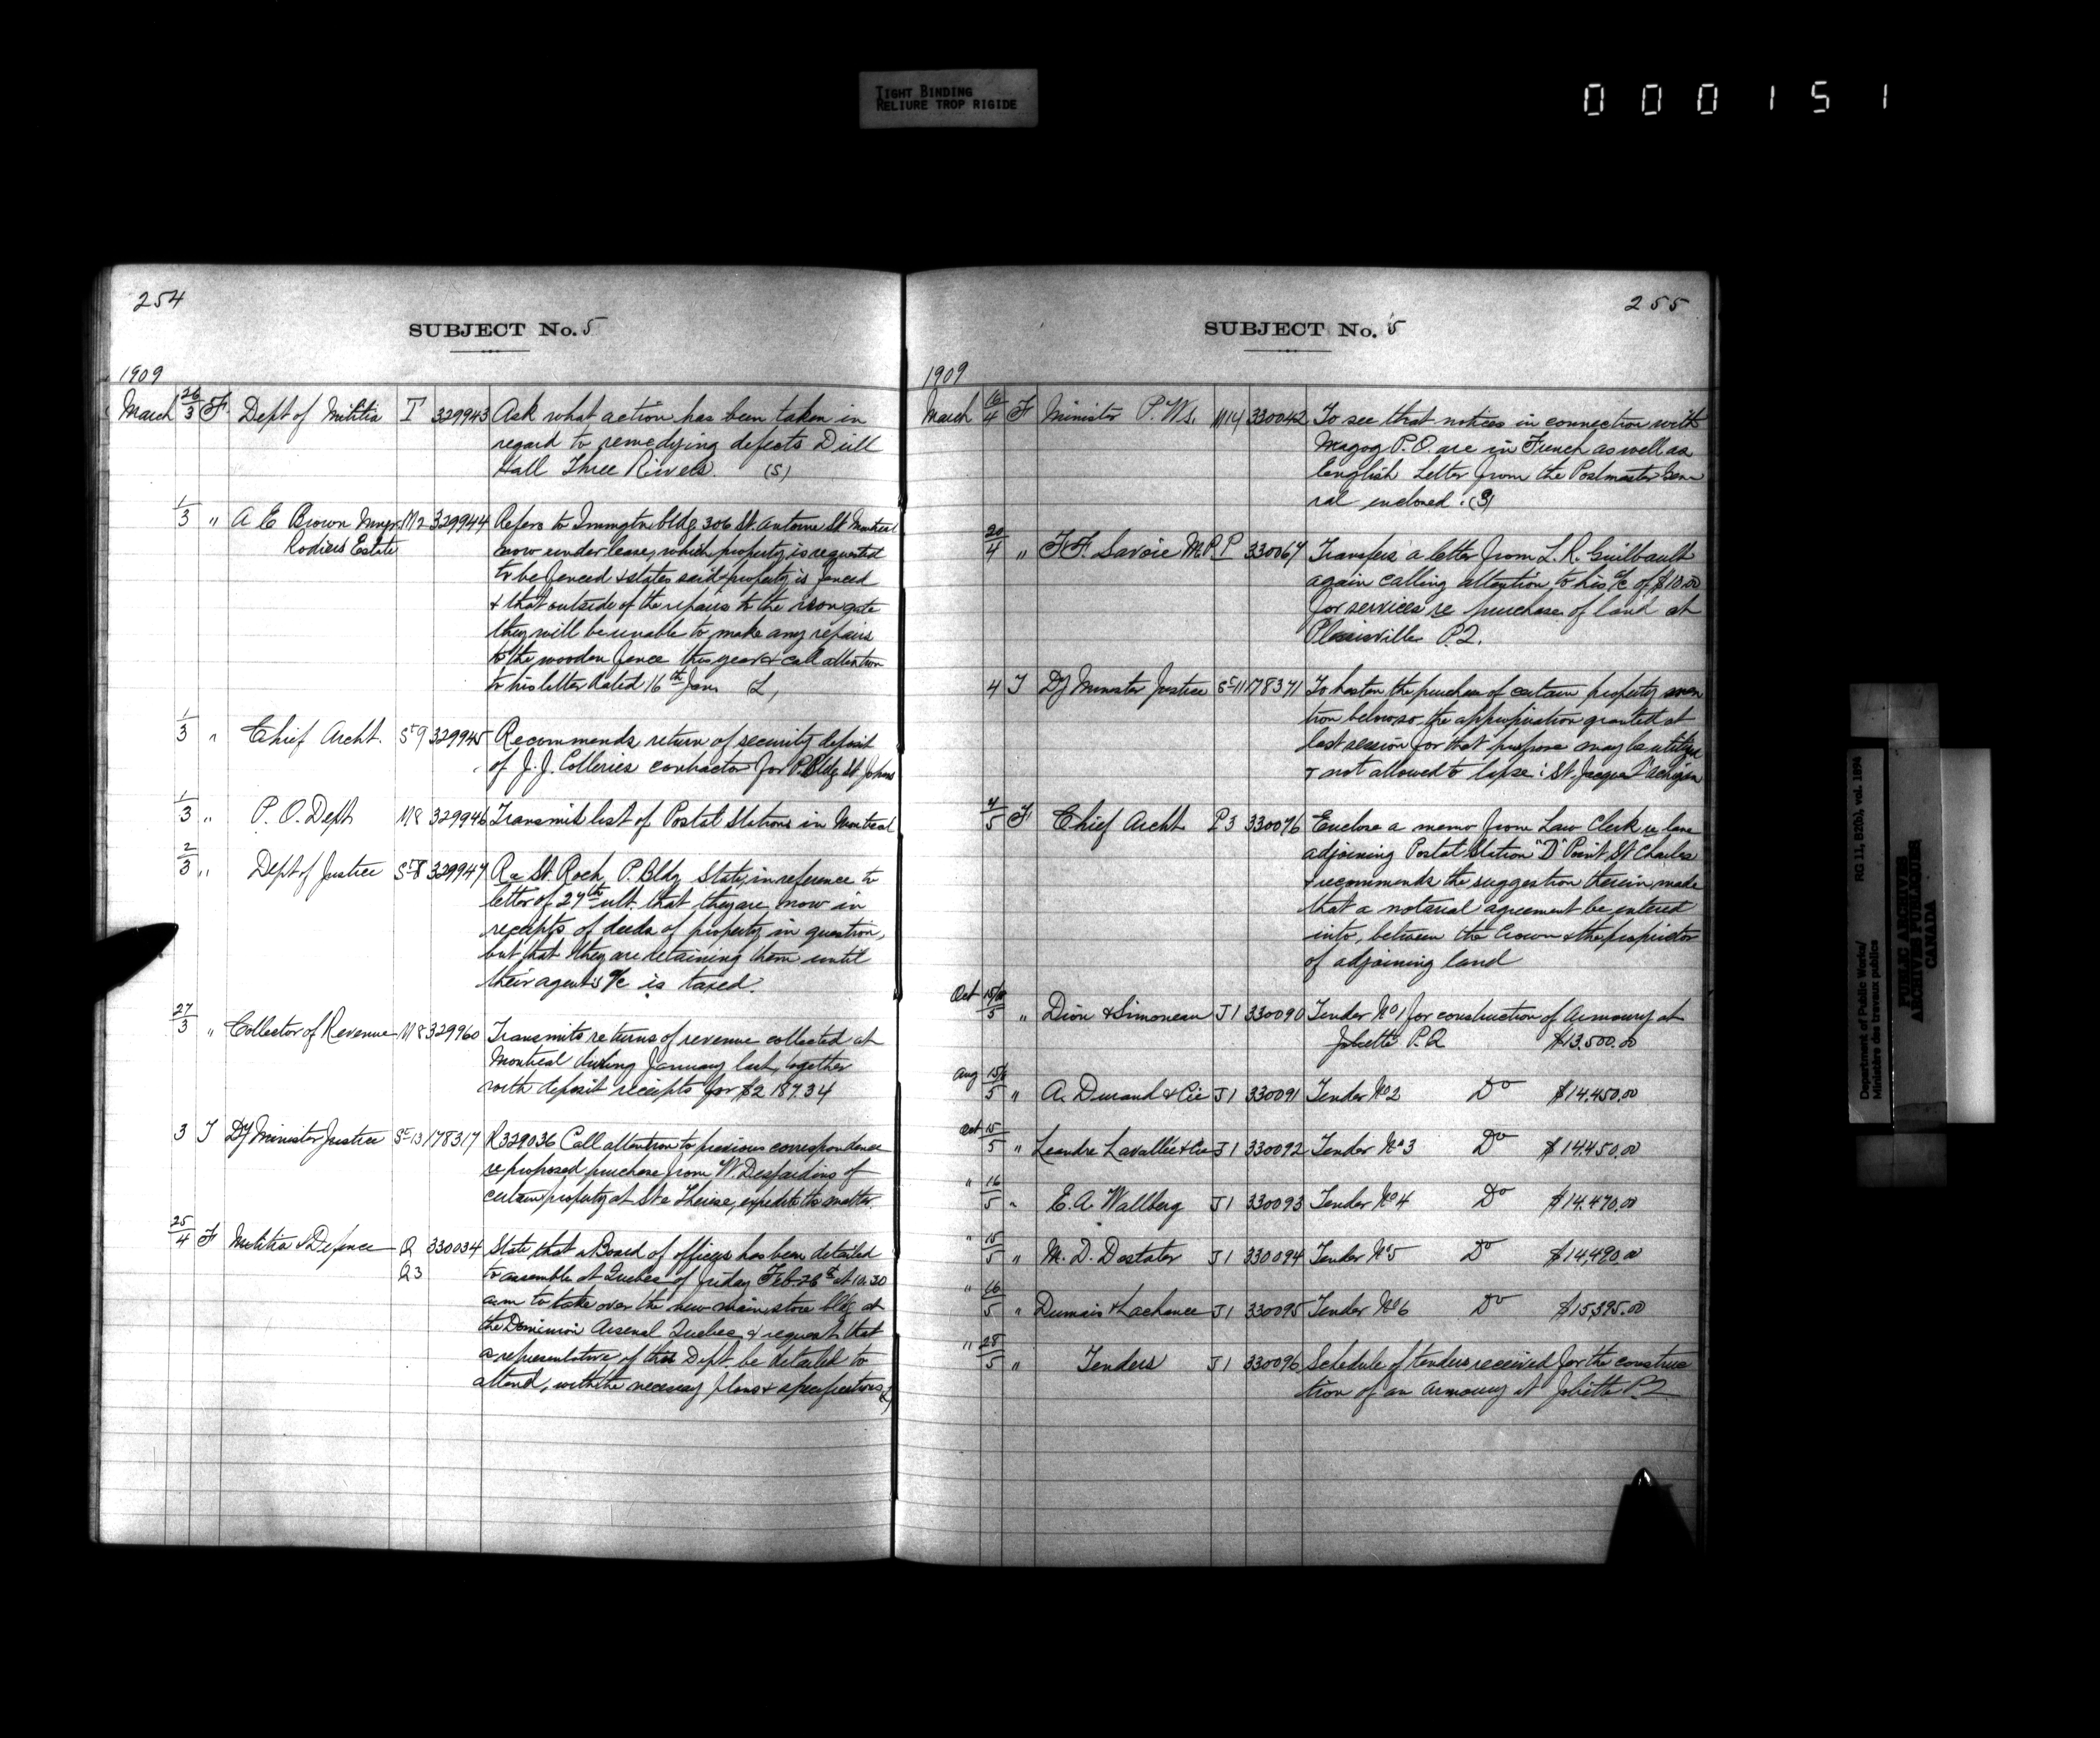 TIGHT BINDING
RELIURE TROP RIGIDE
000151
254
SUBJECT No. 5
1909
March 26/3 F. Dept of Militia T 329943 Ask what action has been taken in
regard to remedying defects Drill
Hall Three Rivers. (S)
1/3 " A E Brown Mngr M2 329944 Refers to Immgtn bldg 306 St. Antoine St Montreal
Rodiers Estate now under lease, which property is requested
to be fenced & states said property is fenced
& that outside of the repairs to the iron gate
they will be unable to make any repairs
to the wooden fence this year & call attention
to his letter dated 16th Jan. L,
1/3 " Chief Archt. St9 329945 Recommends return of security deposit
of J. J. Colleries contractor for P. Bldg St. Johns
1/3 " P. O. Dept M8 329946 Transmit list of Postal Stations in Montreal
2/3 " Dept of Justice St8 329947 Re St. Roch P. Bldg State, in reference to
letter of 27th ult. that they are now in
receipts of deeds of property in question,
but that they are retaining them until
their agent's a/c is taxed.
27/3 " Collector of Revenue M8 329960 Transmits returns of revenue collected at
Montreal during January last, together
with deposit receipts for $2187.34
3 T Dy Minister Justice St13 178317 R329036 Call attention to previous correspondence
re proposed purchase from W. Desjardins of
certain property at Ste Therese, expedite the matter.
25/4 F Militia & Defence Q 330034 State, that a Board of officers has been detailed
Q3 to assemble at Quebec of Friday Feb 26th at 10.30
a.m to take over the new main store bldg at
the Dominion Arsenal Quebec & request that
a representative of this Dept. be detailed to
attend, with the necessary plans & specifications
255
SUBJECT No. 5
1909
March 16/4 F Minister P. Ws. M14 330042 To see that notices in connection with
Magog P.O. are in French as well as
English Letter from the Postmaster Gene
ral enclosed. (S)
20/4 " F.F. Savoie M.P. P 330067 Transfers a letter from L. R. Guilbault
again calling attention to his a/c of $10.00
for services re purchase of land at
Plessisville P.Q.
4 T Dy Minister Justice St11 178371 To hasten the purchase of certain property men
tion below so the appropriation granted at
last session for that purpose may be utilized
& not allowed to lapse: St. Jacques l'Achigan
4/5 F Chief Archt P3 330076 Enclose a memo from Law Clerk re lane
adjoining Postal Station "D" Point St Charles
& recommends the suggestion therein made
that a notarial agreement be entered
into, between the Crown & the proprietor
of adjoining land
Oct 15/5 " Dion & Simoneau J1 330090 Tender No 1 for construction of Armoury at
Joliette P.Q $13.500.00
Aug 15/5 " A. Durand & Cie J1 330091 Tender No 2 Do $14.450.00
Oct 15/5 " Leandre Lavallée & Cie J1 330092 Tender No 3 Do $14.450.00
" 16/5 " E. A. Wallberg J1 330093 Tender No 4 Do $14.470.00
" 15/5 " M. D. Destater J1 330094 Tender No 5 Do $14,490.00
" 16/5 " Dumais & Lachance J1 330095 Tender No 6 Do $15,395.00
" 28/5 " Tenders J1 330096 Schedule of tenders received for the construc
tion of an Armoury at Joliette P.Q
Department of Public Works/ RG 11, B2(b), vol. 1894
Ministère des travaux publics
PUBLIC ARCHIVES
ARCHIVES PUBLIQUES
CANADA